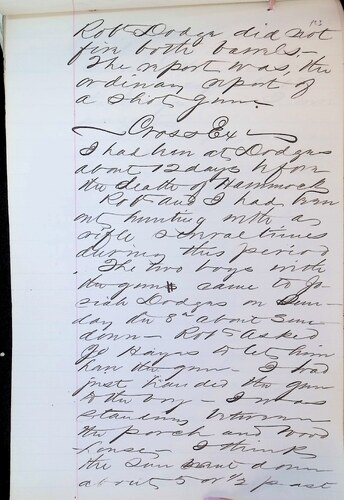 Rob Dodge did not
fire both barrels.-
The report was, the
ordinary report of
a shot gun.
Cross Ex
I had been at Dodges
about 12 days before
the death of Hammock
Rob and I had been
out hunting with a
rifle several times
during this period
The two boys with
the gun came to Jo-
siah Dodges on Sun-
day the 8" about Sun
down - Rob asked
Jo Hayes to let him
have the gun - I had
just handed the gun
to the boy - I was
standing between
the porch and wood
house - I think
the Sun went down
about 5 or 1/2 past